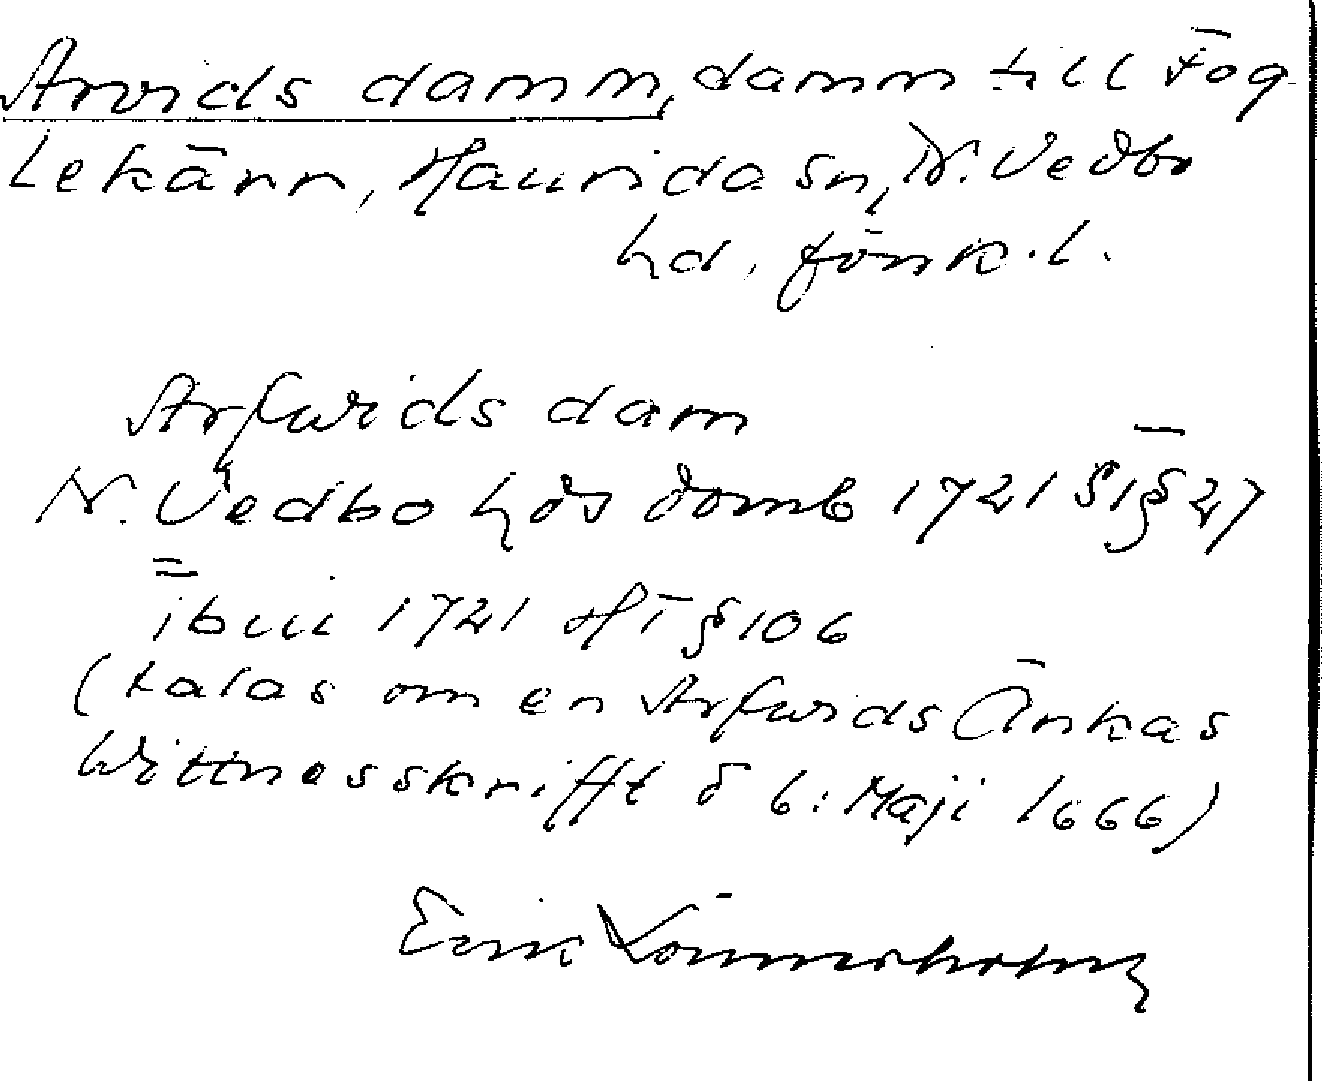 Arvids damm, damm till Fog
lekärr, Haurida sn, N. Vedbo
hd, Jönk. l.
Arfwids dam
N. Vedbo hds domb 1721 § 27
ibm 1721 HT § 106
(talas om en Arfwids Änkas
Wittnesskrifft d 6: Maji 1666)
Erik